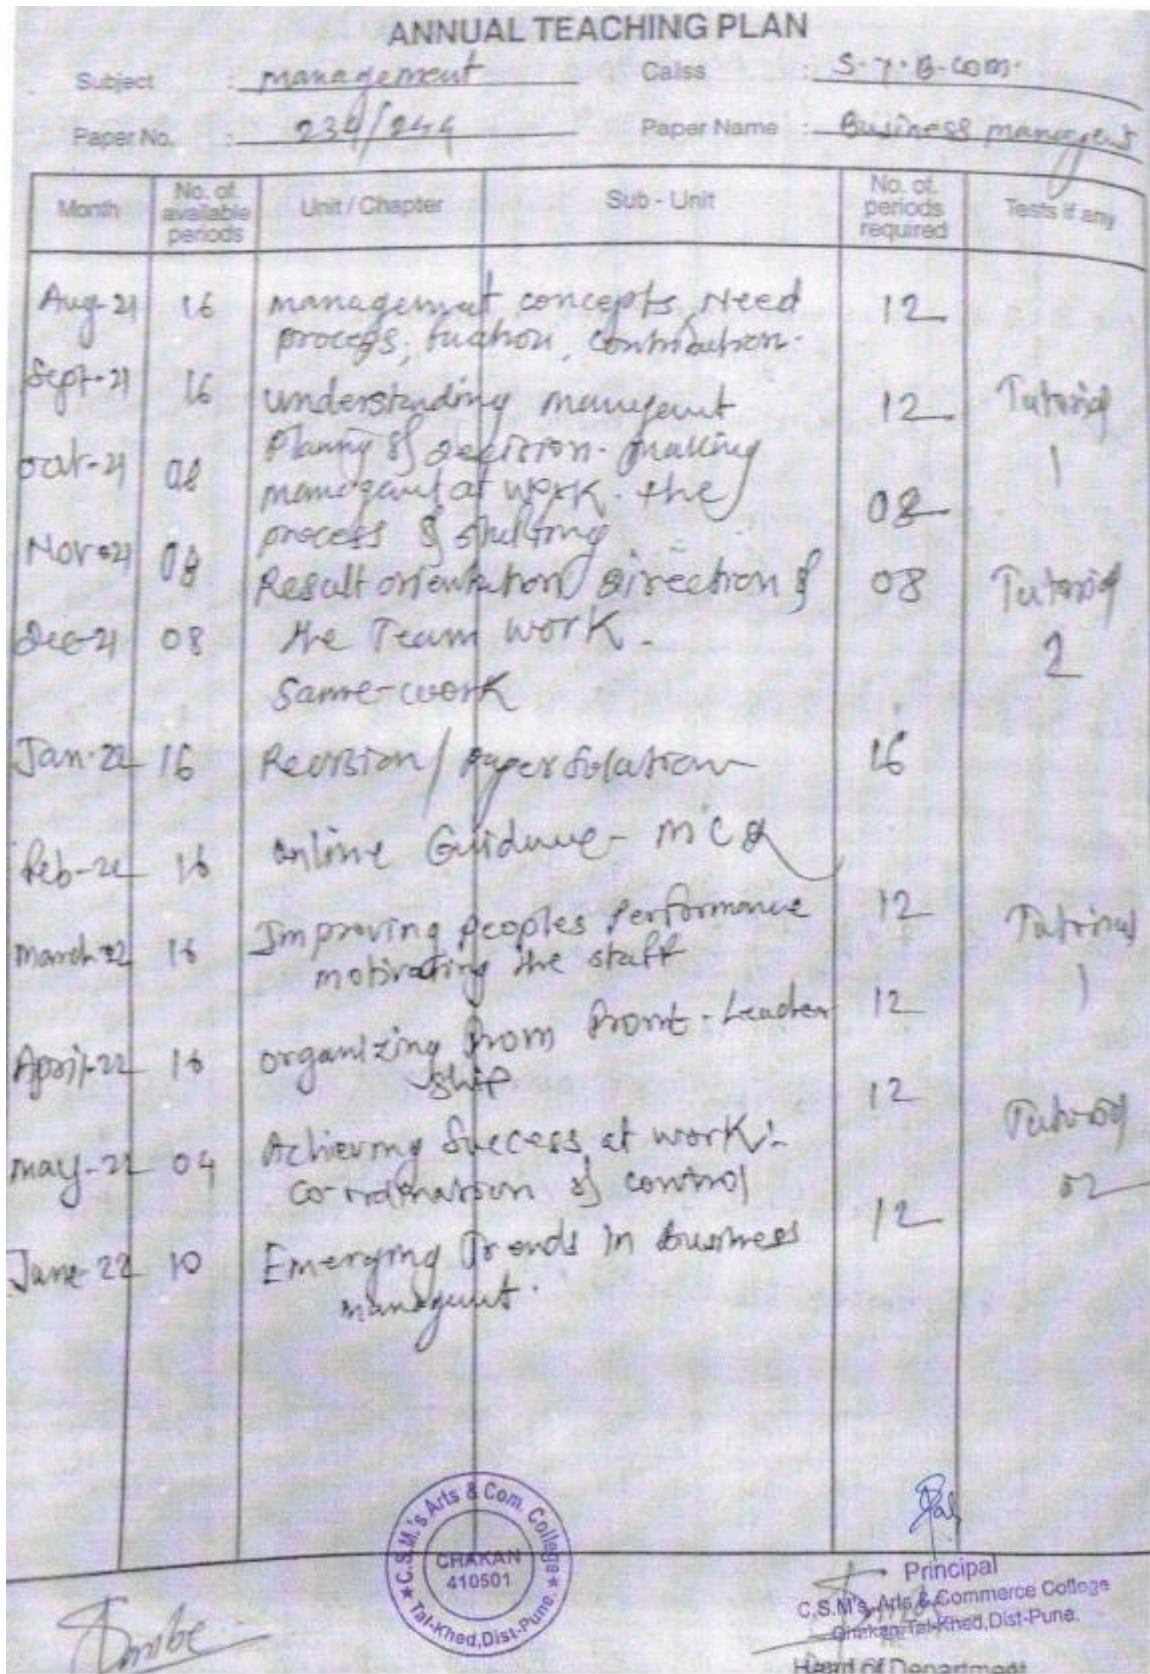 ANNUAL TEACHING PLAN
Subject : management Calss : S.Y.B.com.
Paper No. : 234/244 Paper Name : Business managent
Month No. of available periods Unit / Chapter Sub - Unit No. of periods required Tests if any
Aug-21 16 management concepts, Need 12
process, function, contribution.
Sept-21 16 understanding managent 12 Tutorial 1
Oct-21 08 Planng & decision-making
managent at work. the 08
process &
Nov-21 08 Result orientation direction & 08 Tutorial 2
Dec-21 08 the Team work -
Same-work
Jan-22 16 Revision/Paper Solution 16
Feb-22 16 online Guidance - MCQ
March-22 16 Improving Peoples Performance 12 Tutorial 1
motivating the staff
April-22 16 organizing from Front - Leader 12
ship
12 Tutorial 02
may-22 04 Achieving Success at work:-
Co-ordination & control
June-22 10 Emerging Trends in business 12
managent.
C.S.M.'s Arts & Com. College
CHAKAN
410501
Tal-Khed, Dist-Pune.
Principal
C.S.M's Arts & Commerce College
Chakan, Tal-Khed, Dist-Pune.
Head of Department